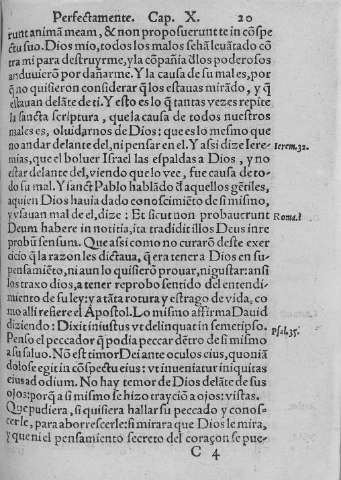 Perfectamente. Cap. X. 20
runt animã meam, & non proposuerunt te in cõspe
ctu suo. Dios mio, todos los malos sehã leuãtado cõ
tra mi para destruyrme, y la cõpañia d̃los poderosos
anduuierõ por dañarme. Y la causa de su mal es, por
q̃ no quisieron considerar q̃ los estauas mirãdo, y q̃
estauan delãte de ti. Y esto es lo q̃ tantas vezes repite
la sancta scriptura, que la causa de todos nuestros
males es, oluidarnos de Dios: que es lo mesmo que
no andar delante del, ni pensar en el. Y assi dize Iere-
mias, que el boluer Israel las espaldas a Dios, y no
Ierem. 32.
estar delante del, viendo que lo vee, fue causa de to-
do su mal. Y sanct Pablo hablãdo d̃ aquellos gẽtiles,
aquien Dios hauia dado conoscimiẽto de si mismo,
y vsauan mal de el, dize: Et sicut non probauerunt
Roma. 1
Deum habere in notitia, ita tradidit illos Deus in re
probũ sensum. Que assi como no curarõ deste exer
cicio q̃ la razon les dictaua, q̃ era tener a Dios en su
pensamiẽto, ni aun lo quisierõ prouar, ni gustar: ansi
los traxo dios, a tener reprobo sentido del entendi-
miento de su ley: y a tãta rotura y estrago de vida, co
mo alli refiere el Apostol. Lo mismo affirma Dauid
diziendo: Dixit iniustus vt delinquat in semetipso.
Psal. 35.
Penso el peccador q̃ podia peccar dẽtro de si mismo
a su saluo. Nõ est timor Dei ante oculos eius, quoniã
dolose egit in cõspectu eius: vt inueniatur iniquitas
eius ad odium. No hay temor de Dios delãte de sus
ojos: porq̃ a si mismo se hizo trayciõ a ojos: vistas.
Que pudiera, si quisiera hallar su peccado y conos-
cerle, para aborrescerle: si mirara que Dios le mira,
y que ni el pensamiento secreto del coraçon se pue-
C 4